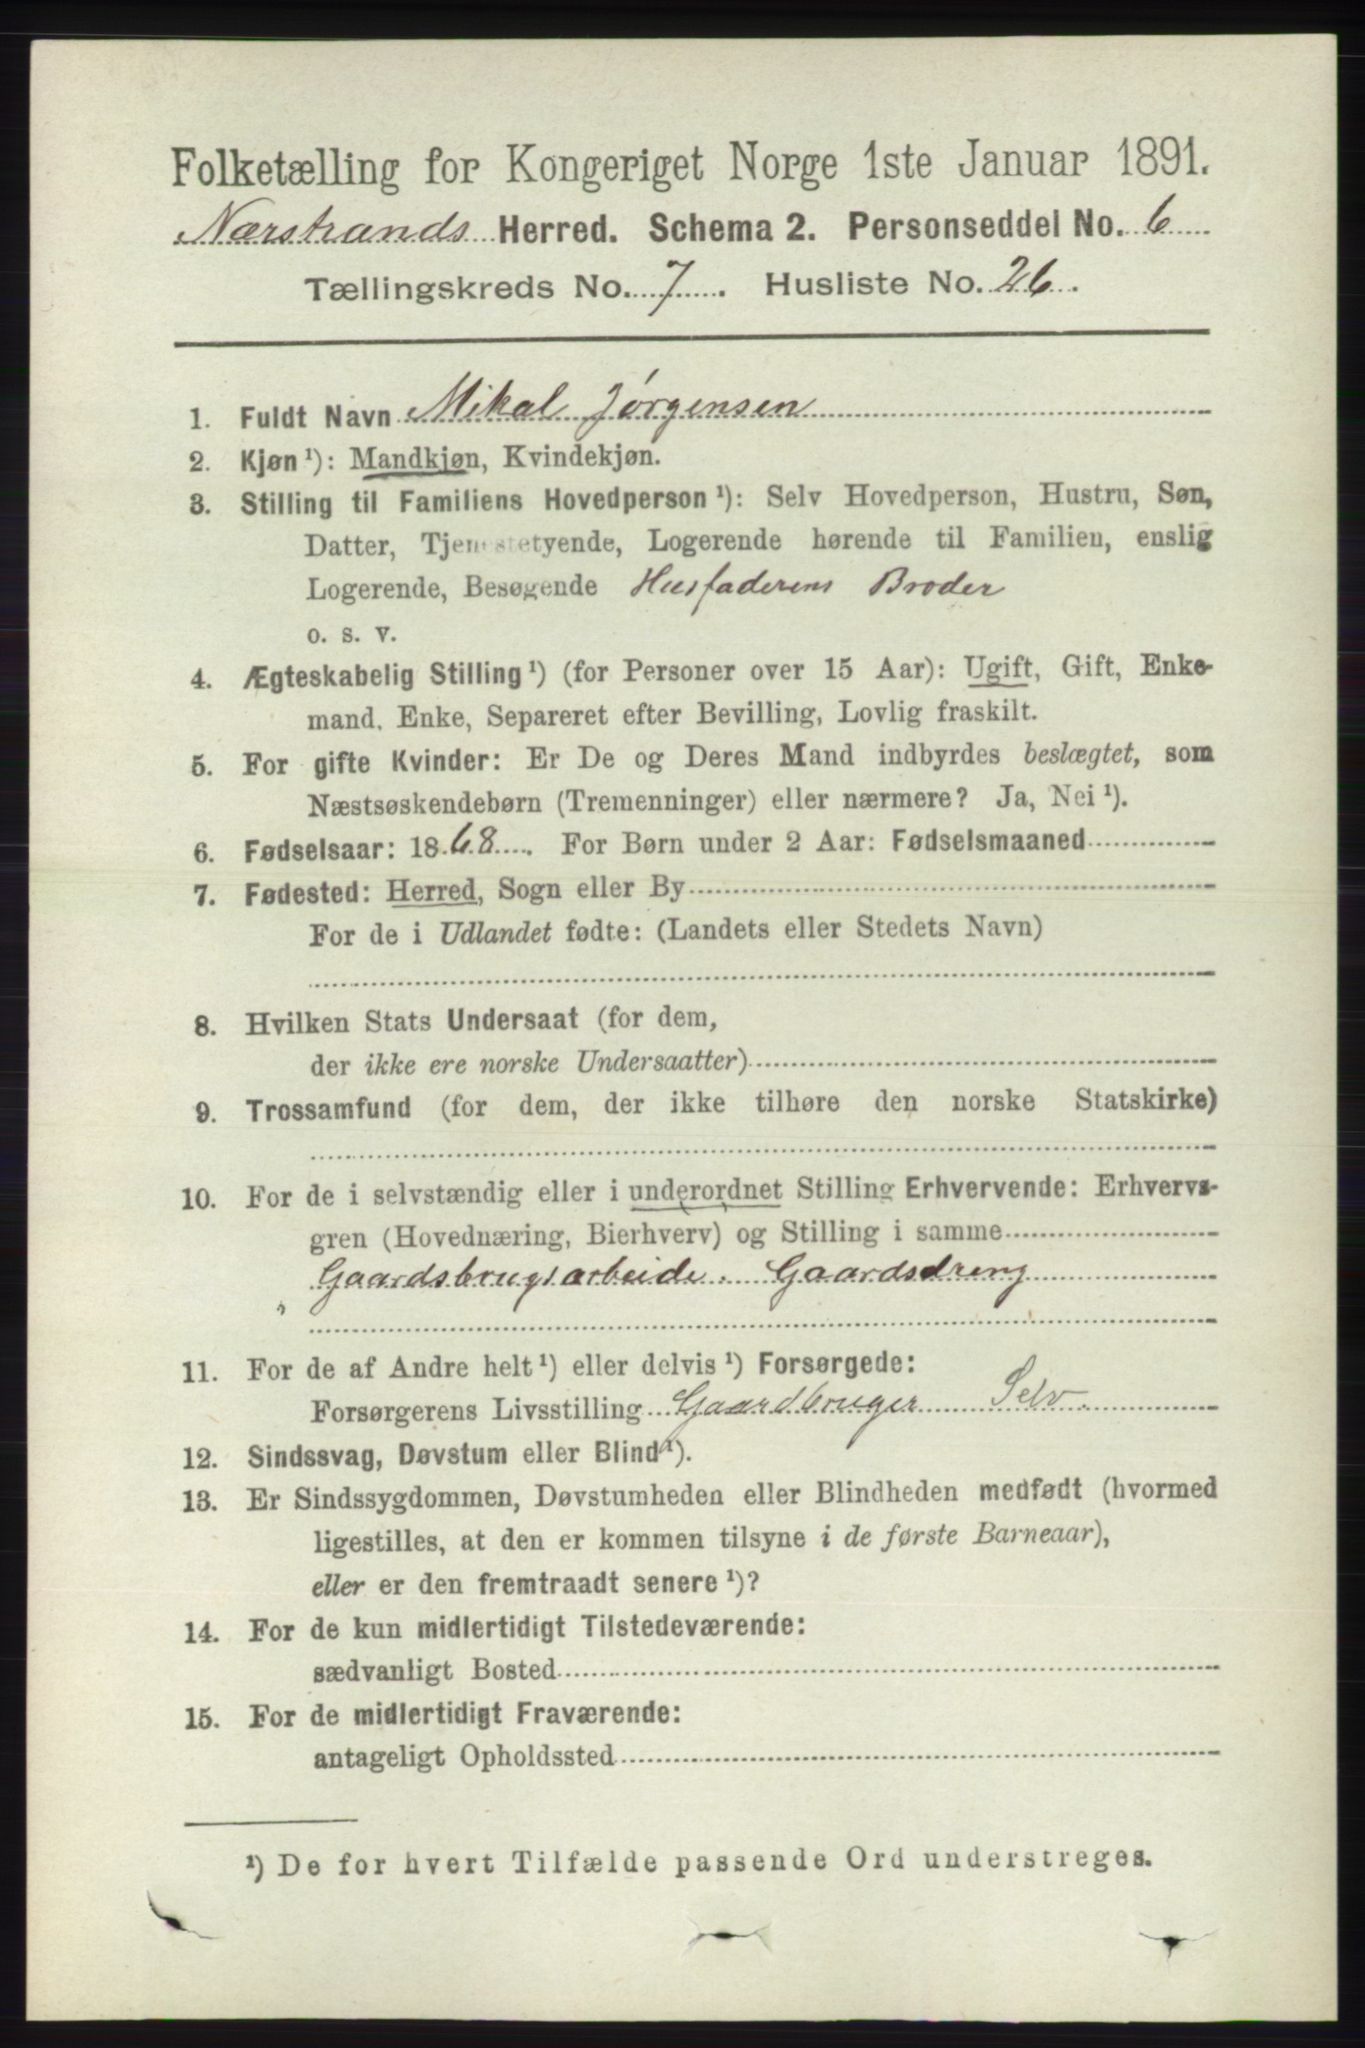 Folketælling for Kongeriget Norge 1ste Januar 1891.
Nærstrands Herred. Schema 2. Personseddel No. 6
Tællingskreds No. 7. Husliste No. 26.
1. Fuldt Navn Mikal Jørgensen
2. Kjøn ¹): Mandkjøn, Kvindekjøn.
3. Stilling til Familiens Hovedperson ¹): Selv Hovedperson, Hustru, Søn,
Datter, Tjenestetyende, Logerende hørende til Familien, enslig
Logerende, Besøgende Husfaderens Broder
o. s. v.
4. Ægteskabelig Stilling ¹) (for Personer over 15 Aar): Ugift, Gift, Enke-
mand, Enke, Separeret efter Bevilling, Lovlig fraskilt.
5. For gifte Kvinder: Er De og Deres Mand indbyrdes beslægtet, som
Næstsøskendebørn (Tremenninger) eller nærmere? Ja, Nei ¹).
6. Fødselsaar: 1868. For Børn under 2 Aar: Fødselsmaaned
7. Fødested: Herred, Sogn eller By
For de i Udlandet fødte: (Landets eller Stedets Navn)
8. Hvilken Stats Undersaat (for dem,
der ikke ere norske Undersaatter)
9. Trossamfund (for dem, der ikke tilhøre den norske Statskirke)
10. For de i selvstændig eller i underordnet Stilling Erhvervende: Erhvervs-
gren (Hovednæring, Bierhverv) og Stilling i samme
Gaardsbrugsarbeide. Gaardsdreng
11. For de af Andre helt ¹) eller delvis ¹) Forsørgede:
Forsørgerens Livsstilling Gaardbruger Selv.
12. Sindssvag, Døvstum eller Blind ¹).
13. Er Sindssygdommen, Døvstumheden eller Blindheden medfødt (hvormed
ligestilles, at den er kommen tilsyne i de første Barneaar),
eller er den fremtraadt senere ¹)?
14. For de kun midlertidigt Tilstedeværende:
sædvanligt Bosted
15. For de midlertidigt Fraværende:
antageligt Opholdssted
¹) De for hvert Tilfælde passende Ord understreges.